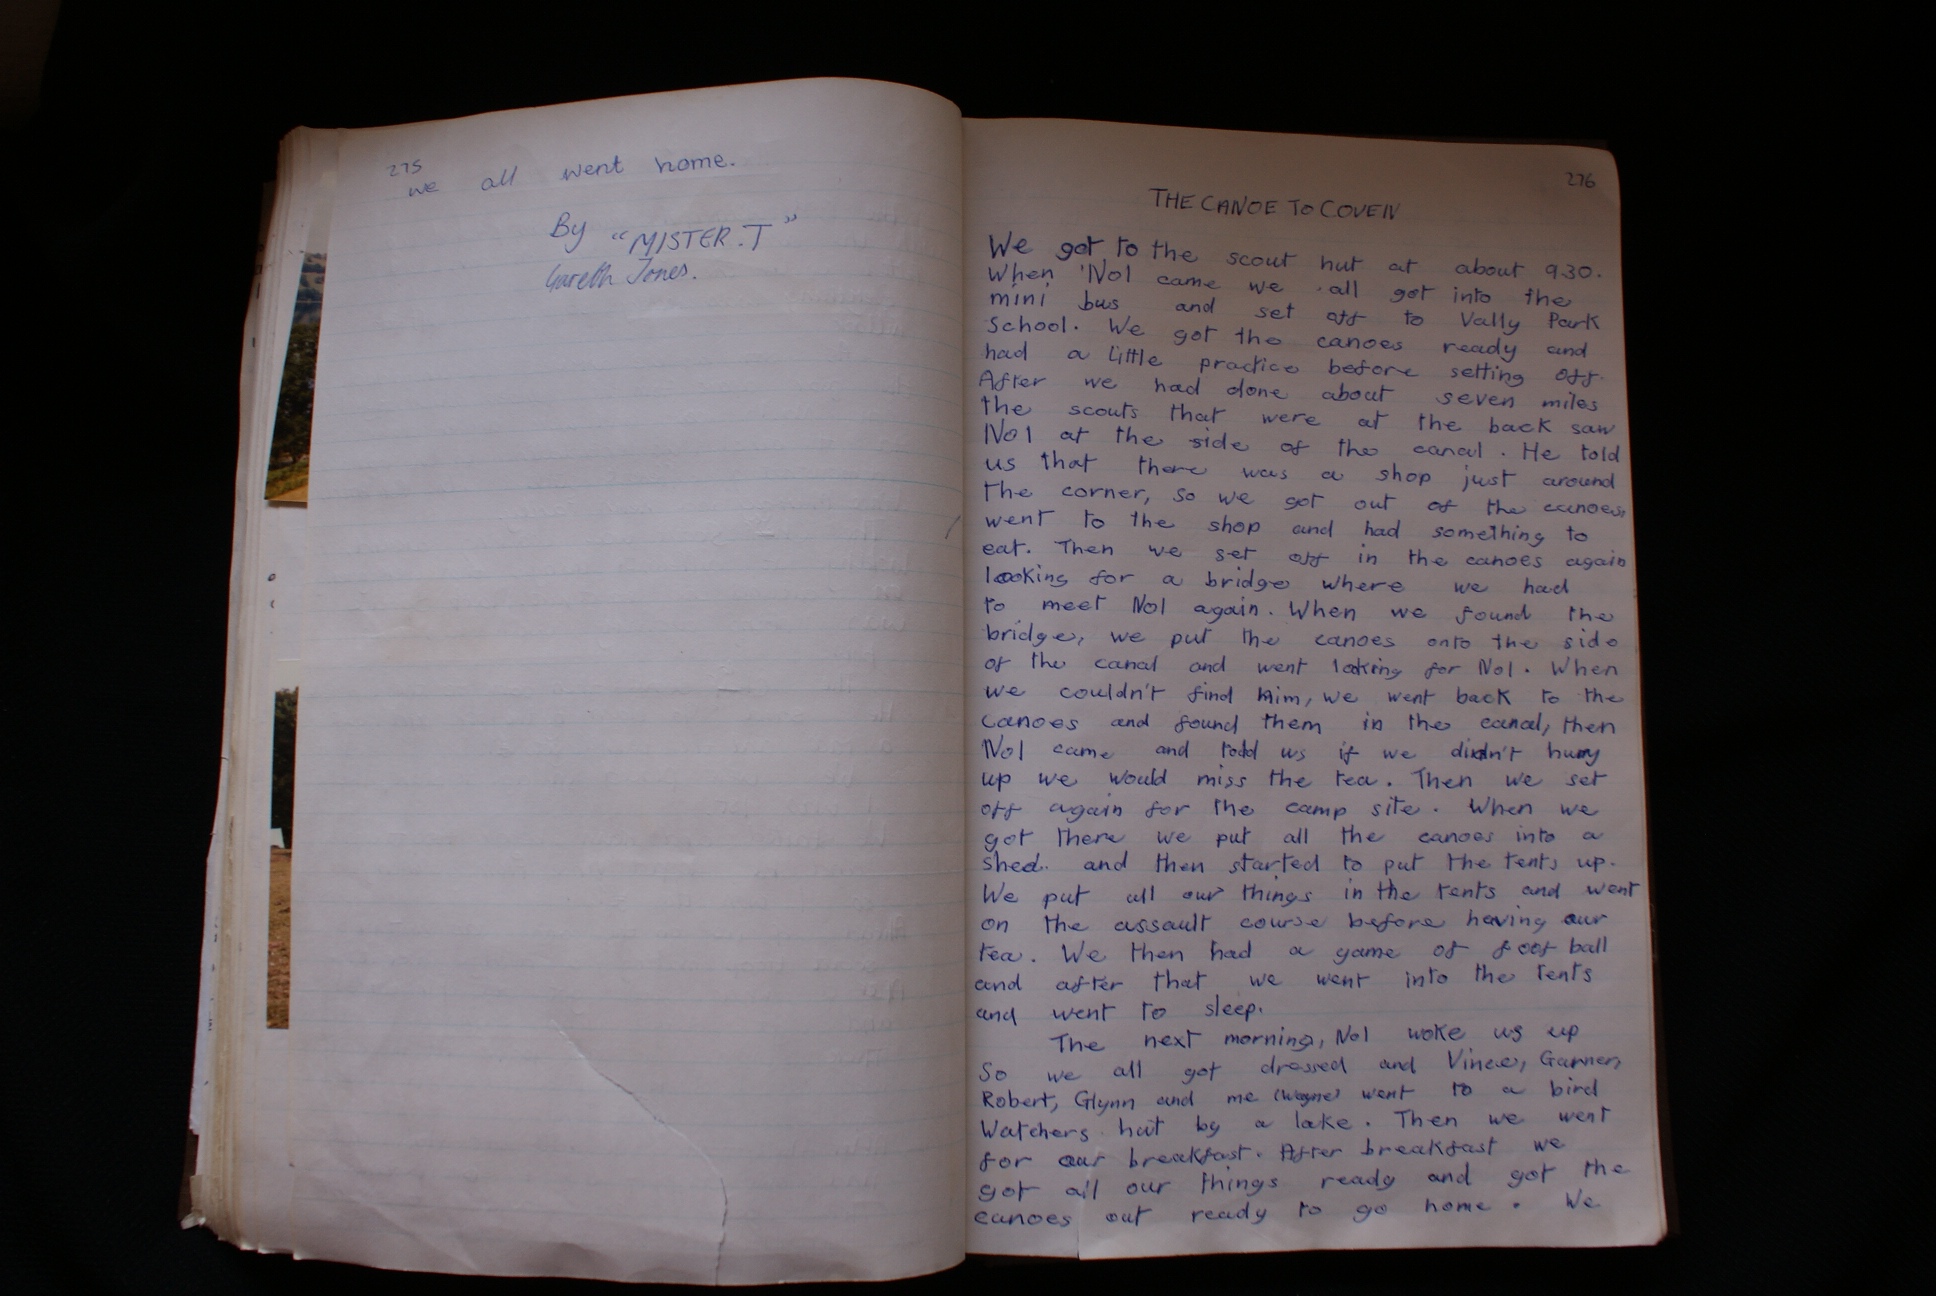 275
we all went home.
By "MISTER.T"
Gareth Jones.
276
THE CANOE TO COVEN
We got to the scout hut at about 9.30.
When 'No1 came we all got into the
mini bus and set off to Vally Park
School. We got the canoes ready and
had a little practice before setting off.
After we had done about seven miles
the scouts that were at the back saw
No1 at the side of the canal. He told
us that there was a shop just around
the corner, so we got out of the canoes,
went to the shop and had something to
eat. Then we set off in the canoes again
looking for a bridge where we had
to meet No1 again. When we found the
bridge, we put the canoes onto the side
of the canal and went looking for No1. When
we couldn't find him, we went back to the
canoes and found them in the canal, then
No1 came and told us if we didn't hurry
up we would miss the tea. Then we set
off again for the camp site. When we
got there we put all the canoes into a
shed. and then started to put the tents up.
We put all our things in the tents and went
on the assault course before having our
tea. We then had a game of foot ball
and after that we went into the tents
and went to sleep.
The next morning, No1 woke us up
So we all got dressed and Vince, Garner,
Robert, Glynn and me (Wayne) went to a bird
Watchers hut by a lake. Then we went
for our breakfast. After breakfast we
got all our things ready and got the
canoes out ready to go home. We